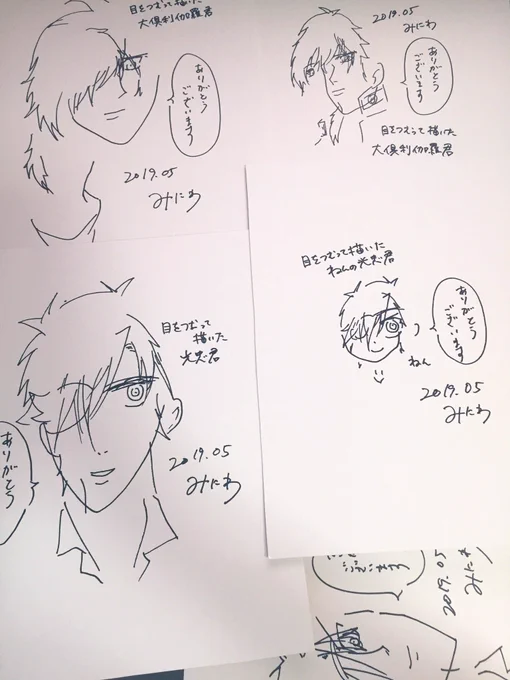 目をつむって描いた
大倶利伽羅君
ありがとう
ございます
2019.05
みにわ
2019.05
みにわ
ありがとう
ございます
目をつむって描いた
大倶利伽羅君
目をつむって
描いた
光忠君
ありがとう
2019.05
みにわ
目をつむって描いた
ねんの光忠君
ありがとう
ございます
ねん
2019.05
みにわ
2019.05
みにわ